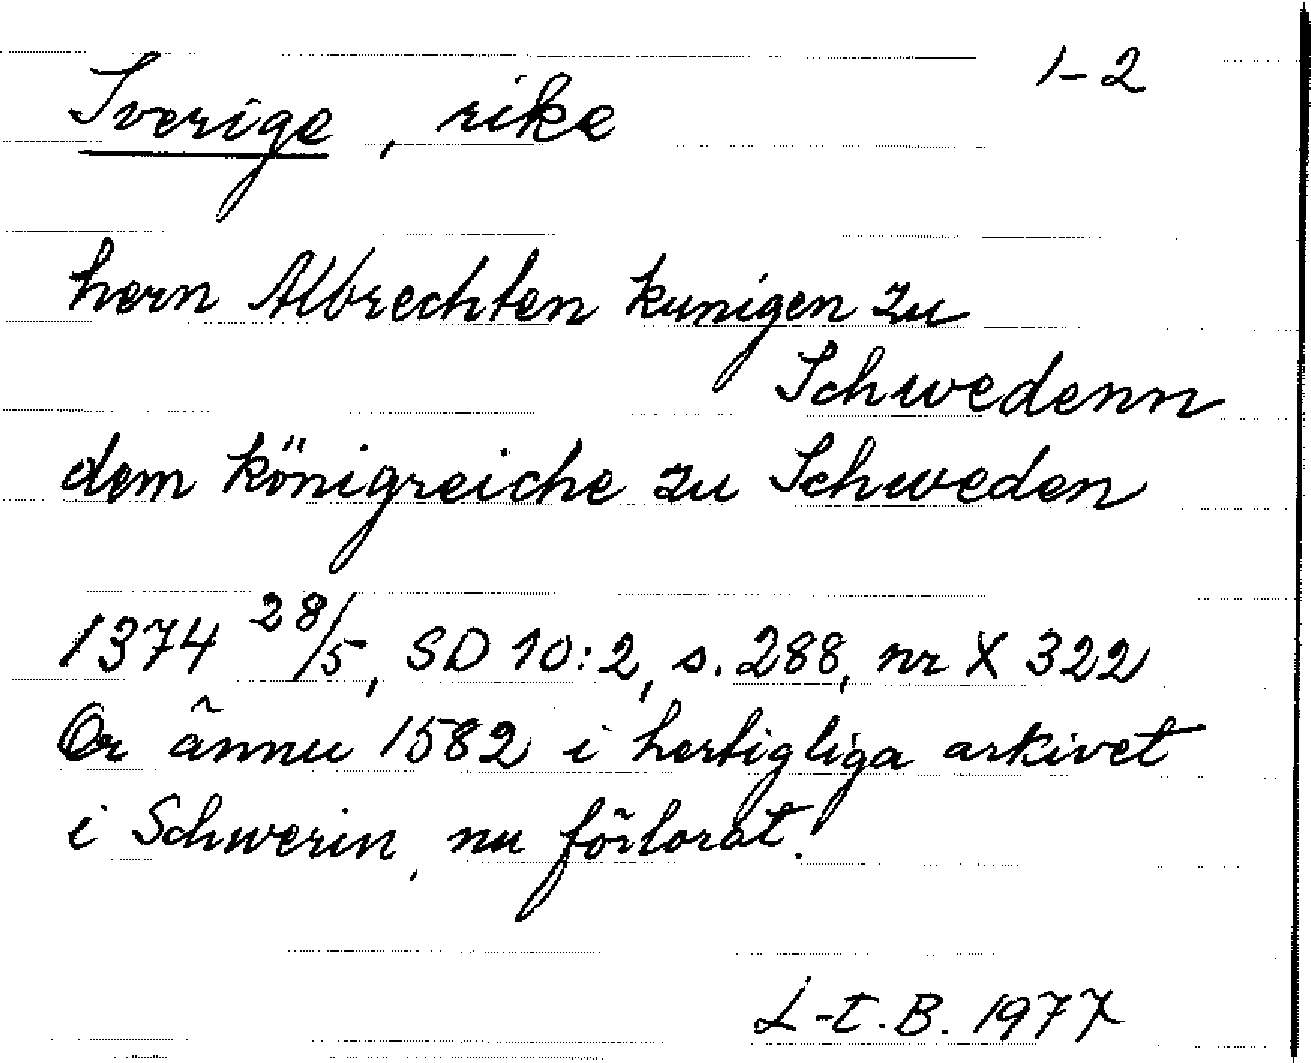 Sverige, rike 1-2
hern Albrechten kunigen zu
Schwedenn
dem königreiche zu Schweden
1374 28/5, SD 10:2, s. 288, nr X 322
Or ännu 1582 i hertigliga arkivet
i Schwerin, nu förlorat.
L-t. B. 1977